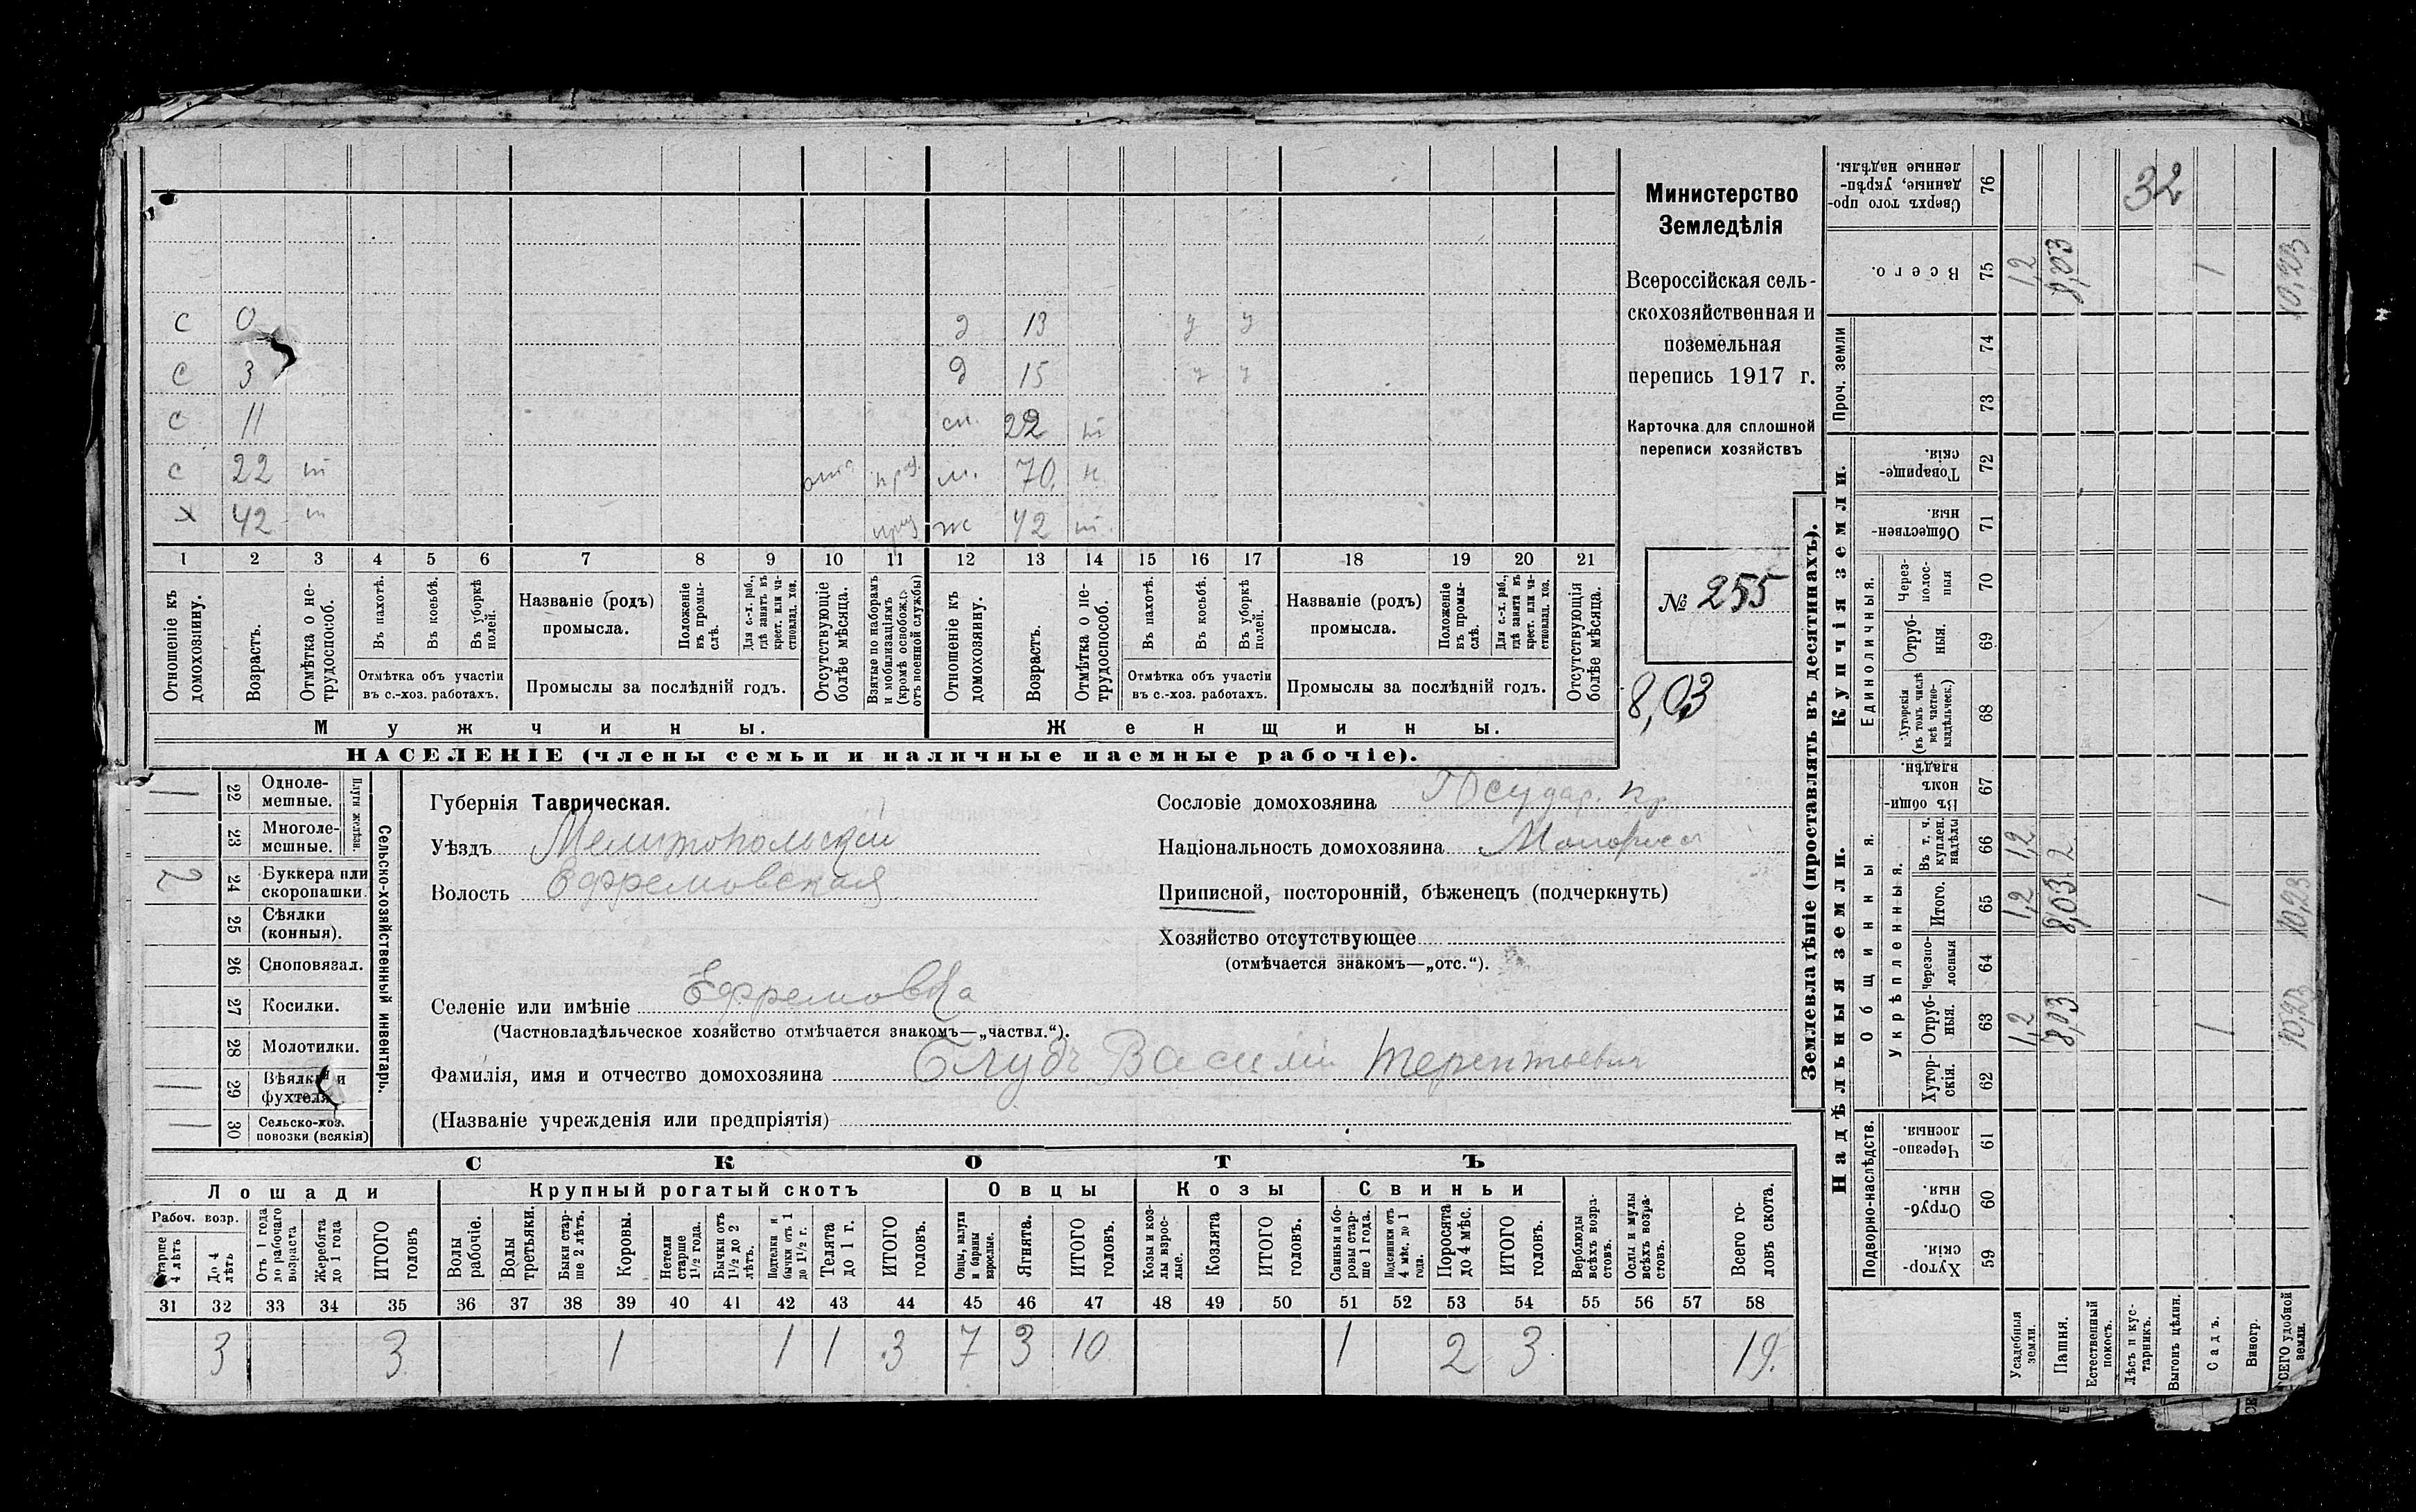 Министерство
Земледѣлія
Всероссійская сель-
скохозяйственная и
поземельная
перепись 1917 г.
Карточка для сплошной
переписи хозяйствъ
№ 255
8,03
с 0 д 13 у у
с 3 д 15 у у
с 11 сн. 22 т
с 22 т отс. м. 70. н.
х 42 т ж 42 т.
1 2 3 4 5 6 7 8 9 10 11 12 13 14 15 16 17 18 19 20 21
Отношеніе къ домохозяину.
Возрастъ.
Отмѣтка о не-трудоспособ.
Въ пахотѣ.
Въ косьбѣ.
Въ уборкѣ полей.
Отмѣтка объ участіи
въ с.-хоз. работахъ.
Названіе (родъ)
промысла.
Положеніе въ промы-слѣ.
Для с.-х. раб., гдѣ занятъ въ крест. или ча-стновлад. хоз.
Промыслы за послѣдній годъ.
Отсутствующіе болѣе мѣсяца.
Взятые по наборамъ и мобилизаціямъ (кромѣ освобожд. отъ военной службы)
Отношеніе къ домохозяину.
Возрастъ.
Отмѣтка о не-трудоспособ.
Въ пахотѣ.
Въ косьбѣ.
Въ уборкѣ полей.
Отмѣтка объ участіи
въ с.-хоз. работахъ.
Названіе (родъ)
промысла.
Положеніе въ промы-слѣ.
Для с.-х. раб., гдѣ занята въ крест. или ча-стновлад. хоз.
Промыслы за послѣдній годъ.
Отсутствующія болѣе мѣсяца.
Мужчины. Женщины.
НАСЕЛЕНІЕ (члены семьи и наличные наемные рабочіе).
Сельско-хозяйственный инвентарь.
Плуги желѣзн.
1 22 Одноле-мешные.
23 Многоле-мешные.
2 24 Буккера или скоропашки.
25 Сѣялки (конныя).
26 Сноповязал.
27 Косилки.
28 Молотилки.
1 29 Вѣялки и фухтеля
1 30 Сельско-хоз. повозки (всякія)
Губернія Таврическая.
Уѣздъ Мелитопольскій
Волость Ефремовская
Сословіе домохозяина Государ. кр.
Національность домохозяина Малоросс
Приписной, посторонній, бѣженецъ (подчеркнуть)
Хозяйство отсутствующее
(отмѣчается знакомъ—„отс.“).
Селеніе или имѣніе Ефремовка
(Частновладѣльческое хозяйство отмѣчается знакомъ—„частвл.“).
Фамилія, имя и отчество домохозяина Глубъ Василій Терентьевич
(Названіе учрежденія или предпріятія)
СКОТЪ
Лошади Крупный рогатый скотъ Овцы Козы Свиньи
Рабоч. возр.
Старше 4 лѣтъ
До 4 лѣтъ
Отъ 1 года до рабочаго возраста
Жеребята до 1 года
ИТОГО головъ
Волы рабочіе.
Волы третьяки.
Быки стар-ше 2 лѣтъ.
Коровы.
Нетели старше 1½ года.
Бычки отъ 1½ до 2 лѣтъ.
Подтелки и бычки отъ 1 до 1½ г.
Телята до 1 г.
ИТОГО головъ.
Овцы, валухи и бараны взрослые.
Ягнята.
ИТОГО головъ.
Козы и коз-лы взрос-лые.
Козлята
ИТОГО головъ.
Свиньи и бо-ровы стар-ше 1 года.
Подсвинки отъ 4 мѣс. до 1 года.
Поросята до 4 мѣс.
ИТОГО головъ.
Верблюды всѣхъ возра-стовъ.
Ослы и мулы всѣхъ возра-стовъ.
Всего го-ловъ скота.
31 32 33 34 35 36 37 38 39 40 41 42 43 44 45 46 47 48 49 50 51 52 53 54 55 56 57 58
3 3 1 1 1 3 7 3 10 1 2 3 19.
Землевладѣніе (проставлять въ десятинахъ).
Купчія земли.
Надѣльныя земли.
Сверхъ того про-данные, укрѣп-ленные надѣлы. 76 32
Всего. 75 1,2 8,03 1 10,23
Проч. земли 74
73
Товарище-скія. 72
Обществен-ныя. 71
Единоличныя.
Через-полос-ныя 70
Отруб-ныя. 69
Хуторскія (въ томъ числѣ всѣ частно-владѣльческ.) 68
Общинныя.
Въ общин-номъ владѣн. 67
Укрѣпленныя.
Въ т. ч. куплен. надѣлы 66 1,2 2
Итого. 65 1,2 8,03 1 10,23
Черезпо-лосныя 64
Отруб-ныя. 63 1,2 8,03 1 10,23
Хутор-скія. 62
Подворно-наслѣдств.
Черезпо-лосныя. 61
Отруб-ныя. 60
Хутор-скія. 59
Усадебныя земли.
Пашня.
Естественный покосъ.
Лѣсъ и кус-тарникъ.
Выгонъ цѣлин.
Садъ.
Виногр.
ВСЕГО удобной земли.